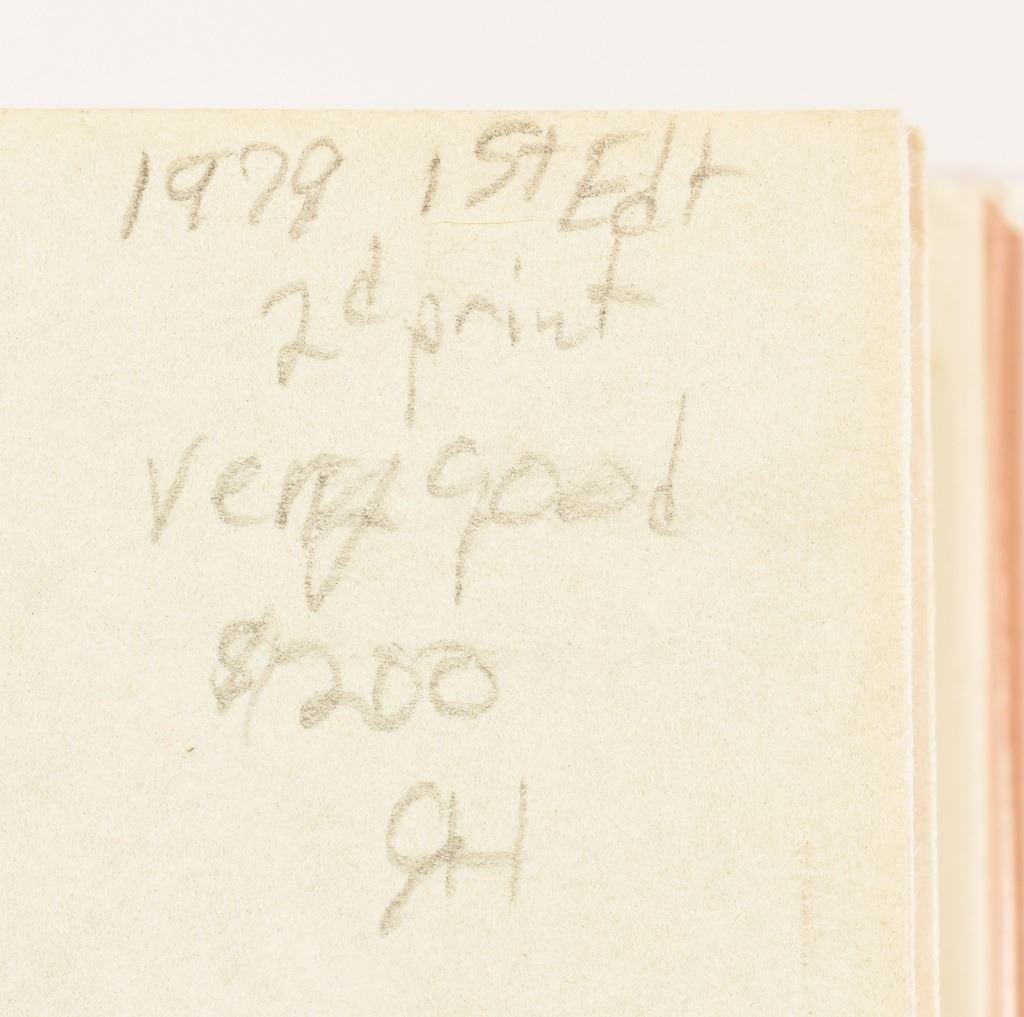 1979 1st Edt
2d print
very good
$200